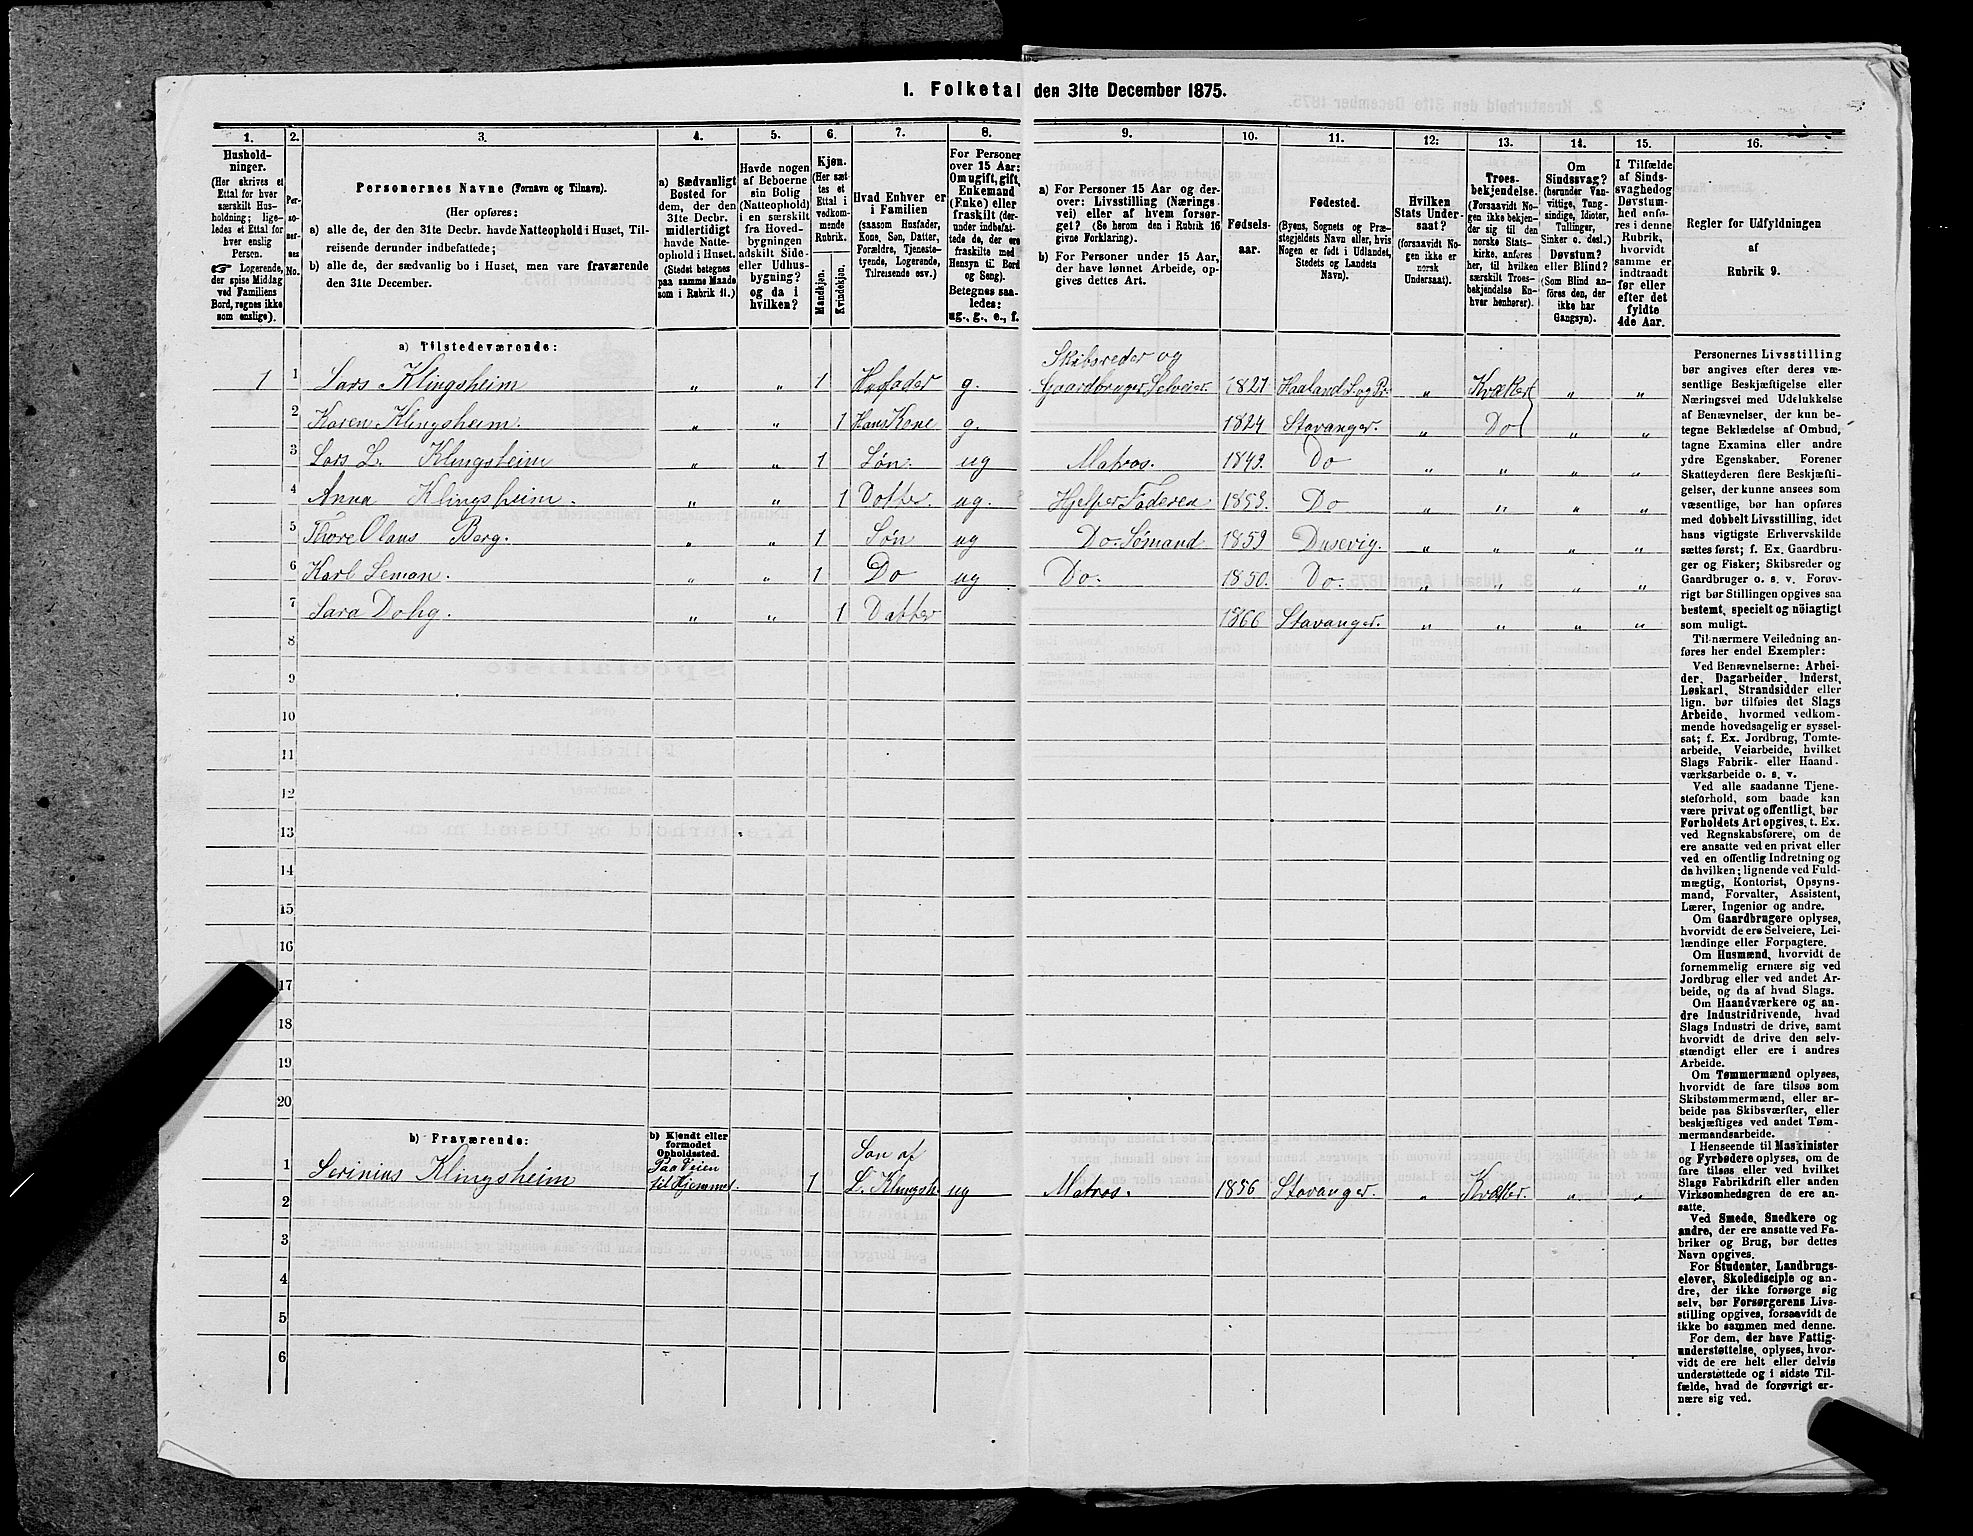 I. Folketal den 31te December 1875.
1. 2. 3. 4. 5. 6. 7. 8. 9. 10. 11. 12: 13. 14. 15. 16.
Hushold-
ninger.
(Her skrives et
Ettal for hver
særskilt Hus-
holdning; lige-
ledes et Ettal for
hver enslig
Person.
☞ Logerende,
der spise Middag
ved Familiens
Bord, regnes ikke
som enslige).
Per-
so-
ner-
nes
No.
Personernes Navne (Fornavn og Tilnavn).
(Her opføres:
a) alle de, der den 31te Decbr. havde Natteophold i Huset, Til-
reisende derunder indbefattede;
b) alle de, der sædvanlig bo i Huset, men vare fraværende
den 31te December.
a) Sædvanligt
Bosted for
dem, der den
31te Decbr.
midlertidigt
havde Natte-
ophold i Huset.
(Stedet betegnes
paa samme Maade
som i Rubrik 11.)
Havde nogen
af Beboerne
sin Bolig
(Natteophold)
i en særskilt
fra Hoved-
bygningen
adskilt Side-
eller Udhus-
bygning?
og da i
hvilken?
Kjøn.
(Her sæt-
tes et
Ettal i
vedkom-
mende
Rubrik.
Mandkjøn.
Kvindekjøn.
Hvad Enhver er
i Familien
(saasom Husfader,
Kone, Søn, Datter,
Forældre, Tjeneste-
tyende, Logerende,
Tilreisende osv.)
For Personer
over 15 Aar:
Om ugift, gift,
Enkemand
(Enke) eller
fraskilt (der-
under indbefat-
tede de, der ere
fraskilte med
Hensyn til Bord
og Seng).
Betegnes saa-
ledes:
ug., g., e., f.
a) For Personer 15 Aar og der-
over: Livsstilling (Nærings-
vei) eller af hvem forsør-
get? (Se herom den i Rubrik 16
givne Forklaring).
b) For Personer under 15 Aar,
der have lønnet Arbeide, op-
gives dettes Art.
Fødsels-
aar.
Fødested.
(Byens, Sognets og Præ-
stegjeldets Navn eller, hvis
Nogen er født i Udlandet,
Stedets og Landets
Navn).
Hvilken
Stats Under-
saat?
(forsaavidt No-
gen ikke er
norsk
Undersaat).
Troes-
bekjendelse.
(Forsaavidt No-
gen ikke bekjen-
der sig til den
norske Stats-
kirke, anføres
her, til hvilken
særskilt Troes-
bekjendelse En-
hver henhører).
Om
Sindssvag?
(herunder Van-
vittige, Tung-
sindige, Idioter,
Tullinger,
Sinker o. desl.)
Døvstum?
eller Blind?
(Som Blind an-
føres den, der
ikke har
Gangsyn).
I Tilfælde
af Sinds-
svaghed og
Døvstum-
hed anfø-
res i denne
Rubrik,
hvorvidt
samme er
indtraadt
før eller
efter det
fyldte
4de Aar.
Regler for Udfyldningen
af
Rubrik 9.
a) Tilstedeværende:
Skibsreder og
1 1 Lars Klingsheim „ „ 1 Husfader g. Gaardbruger, Selveier. 1821 Haaland S. og Pr. „ Kvæker „ „
2 Karen Klingsheim. „ „ 1 Hans Kone g. 1824 Stavanger. „ Do „ „
3 Lars L. Klingsheim „ „ 1 Søn. ug Matros. 1849. Do „ „ „ „
4 Anna Klingsheim. „ „ 1 Datter. ug. Hjelper Faderen 1853. Do „ „ „ „
5 Thore Olaus Berg. „ „ 1 Søn ug Do. Sømand 1859 Dusevig. „ „ „ „
6 Karl Seman. „ „ 1 Do ug Do. 1850. Do. „ „ „ „
7 Sara Dohg. „ „ 1 Datter 1866 Stavanger. „ „ „ „
8
9
10
11
12
13
14
15
16
17
18
19
20
b) Fraværende:
b) Kjendt eller
formodet
Opholdssted.
Paa Veien Søn af
1 Serinius Klingsheim til Hjemmet. 1 L. Klingsh. ug Matros. 1856 Stavanger. „ Kvæker. „ „
2
3
4
5
6
Personernes Livsstilling
bør angives efter deres væ-
sentlige Beskjæftigelse eller
Næringsvei med Udelukkelse
af Benævnelser, der kun be-
tegne Beklædelse af Ombud,
tagne Examina eller andre
ydre Egenskaber. Forener
Skatteyderen flere Beskjæfti-
gelser, der kunne ansees som
væsentlige, bør han opføres
med dobbelt Livsstilling, idet
hans vigtigste Erhvervskilde
sættes først; f. Ex. Gaardbru-
ger og Fisker; Skibsreder og
Gaardbruger o. s. v. Forøv-
rigt bør Stillingen opgives saa
bestemt, specielt og nöiagtigt
som muligt.
Til nærmere Veiledning an-
føres her endel Exempler:
Ved Benævnelserne: Arbei-
der, Dagarbeider, Inderst,
Løskarl, Strandsidder eller
lign. bør tilføies det Slags
Arbeide, hvormed vedkom-
mende hovedsagelig er syssel-
sat; f. Ex. Jordbrug, Tomte-
arbeide, Veiarbeide, hvilket
Slags Fabrik- eller Haand-
værksarbeide o. s. v.
Ved alle saadanne Tjene-
steforhold, som baade kan
være privat og offentligt, bør
Forholdets Art opgives, t. Ex.
ved Regnskabsførere, om de
ere ansatte ved en privat eller
ved en offentlig Indretning og
da hvilken; lignende ved Fuld-
mægtig, Kontorist, Opsyns-
mand, Forvalter, Assistent,
Lærer, Ingeniør og andre.
Om Gaardbrugere oplyses,
hvorvidt de ere Selveiere, Lei-
lændinge eller Forpagtere.
Om Husmænd, hvorvidt de
fornemmelig ernære sig ved
Jordbrug eller ved andet Ar-
beide, og da af hvad Slags.
Om Haandværkere og an-
dre Industridrivende, hvad
Slags Industri de drive, samt
hvorvidt de drive den selv-
stændigt eller ere i andres
Arbeide.
Om Tømmermænd oplyses,
hvorvidt de fare tilsøs som
Skibstømmermænd, eller ar-
beide paa Skibsværfter, eller
beskjæftiges ved andet Tøm-
mermandsarbeide.
I Henseende til Maskinister
og Fyrbødere oplyses, om de
fare tilsøs eller ved hvilket
Slags Fabrikdrift eller anden
Virksomhedsgren de ere an-
satte.
Ved Smede, Snedkere og
andre, der ere ansatte ved Fa-
briker og Brug, bør dettes
Navn opgives.
For Studenter, Landbrugs-
elever, Skoledisciple og an-
dre, der ikke forsørge sig
selv, bør Forsørgerens Livs-
stilling opgives, forsaavidt de
ikke bo sammen med denne.
For dem, der have Fattig-
understøttelse, oplyses, hvor-
vidt de ere helt eller delvis
understøttede og i sidste Til-
fælde, hvad de forøvrigt er-
nære sig ved.